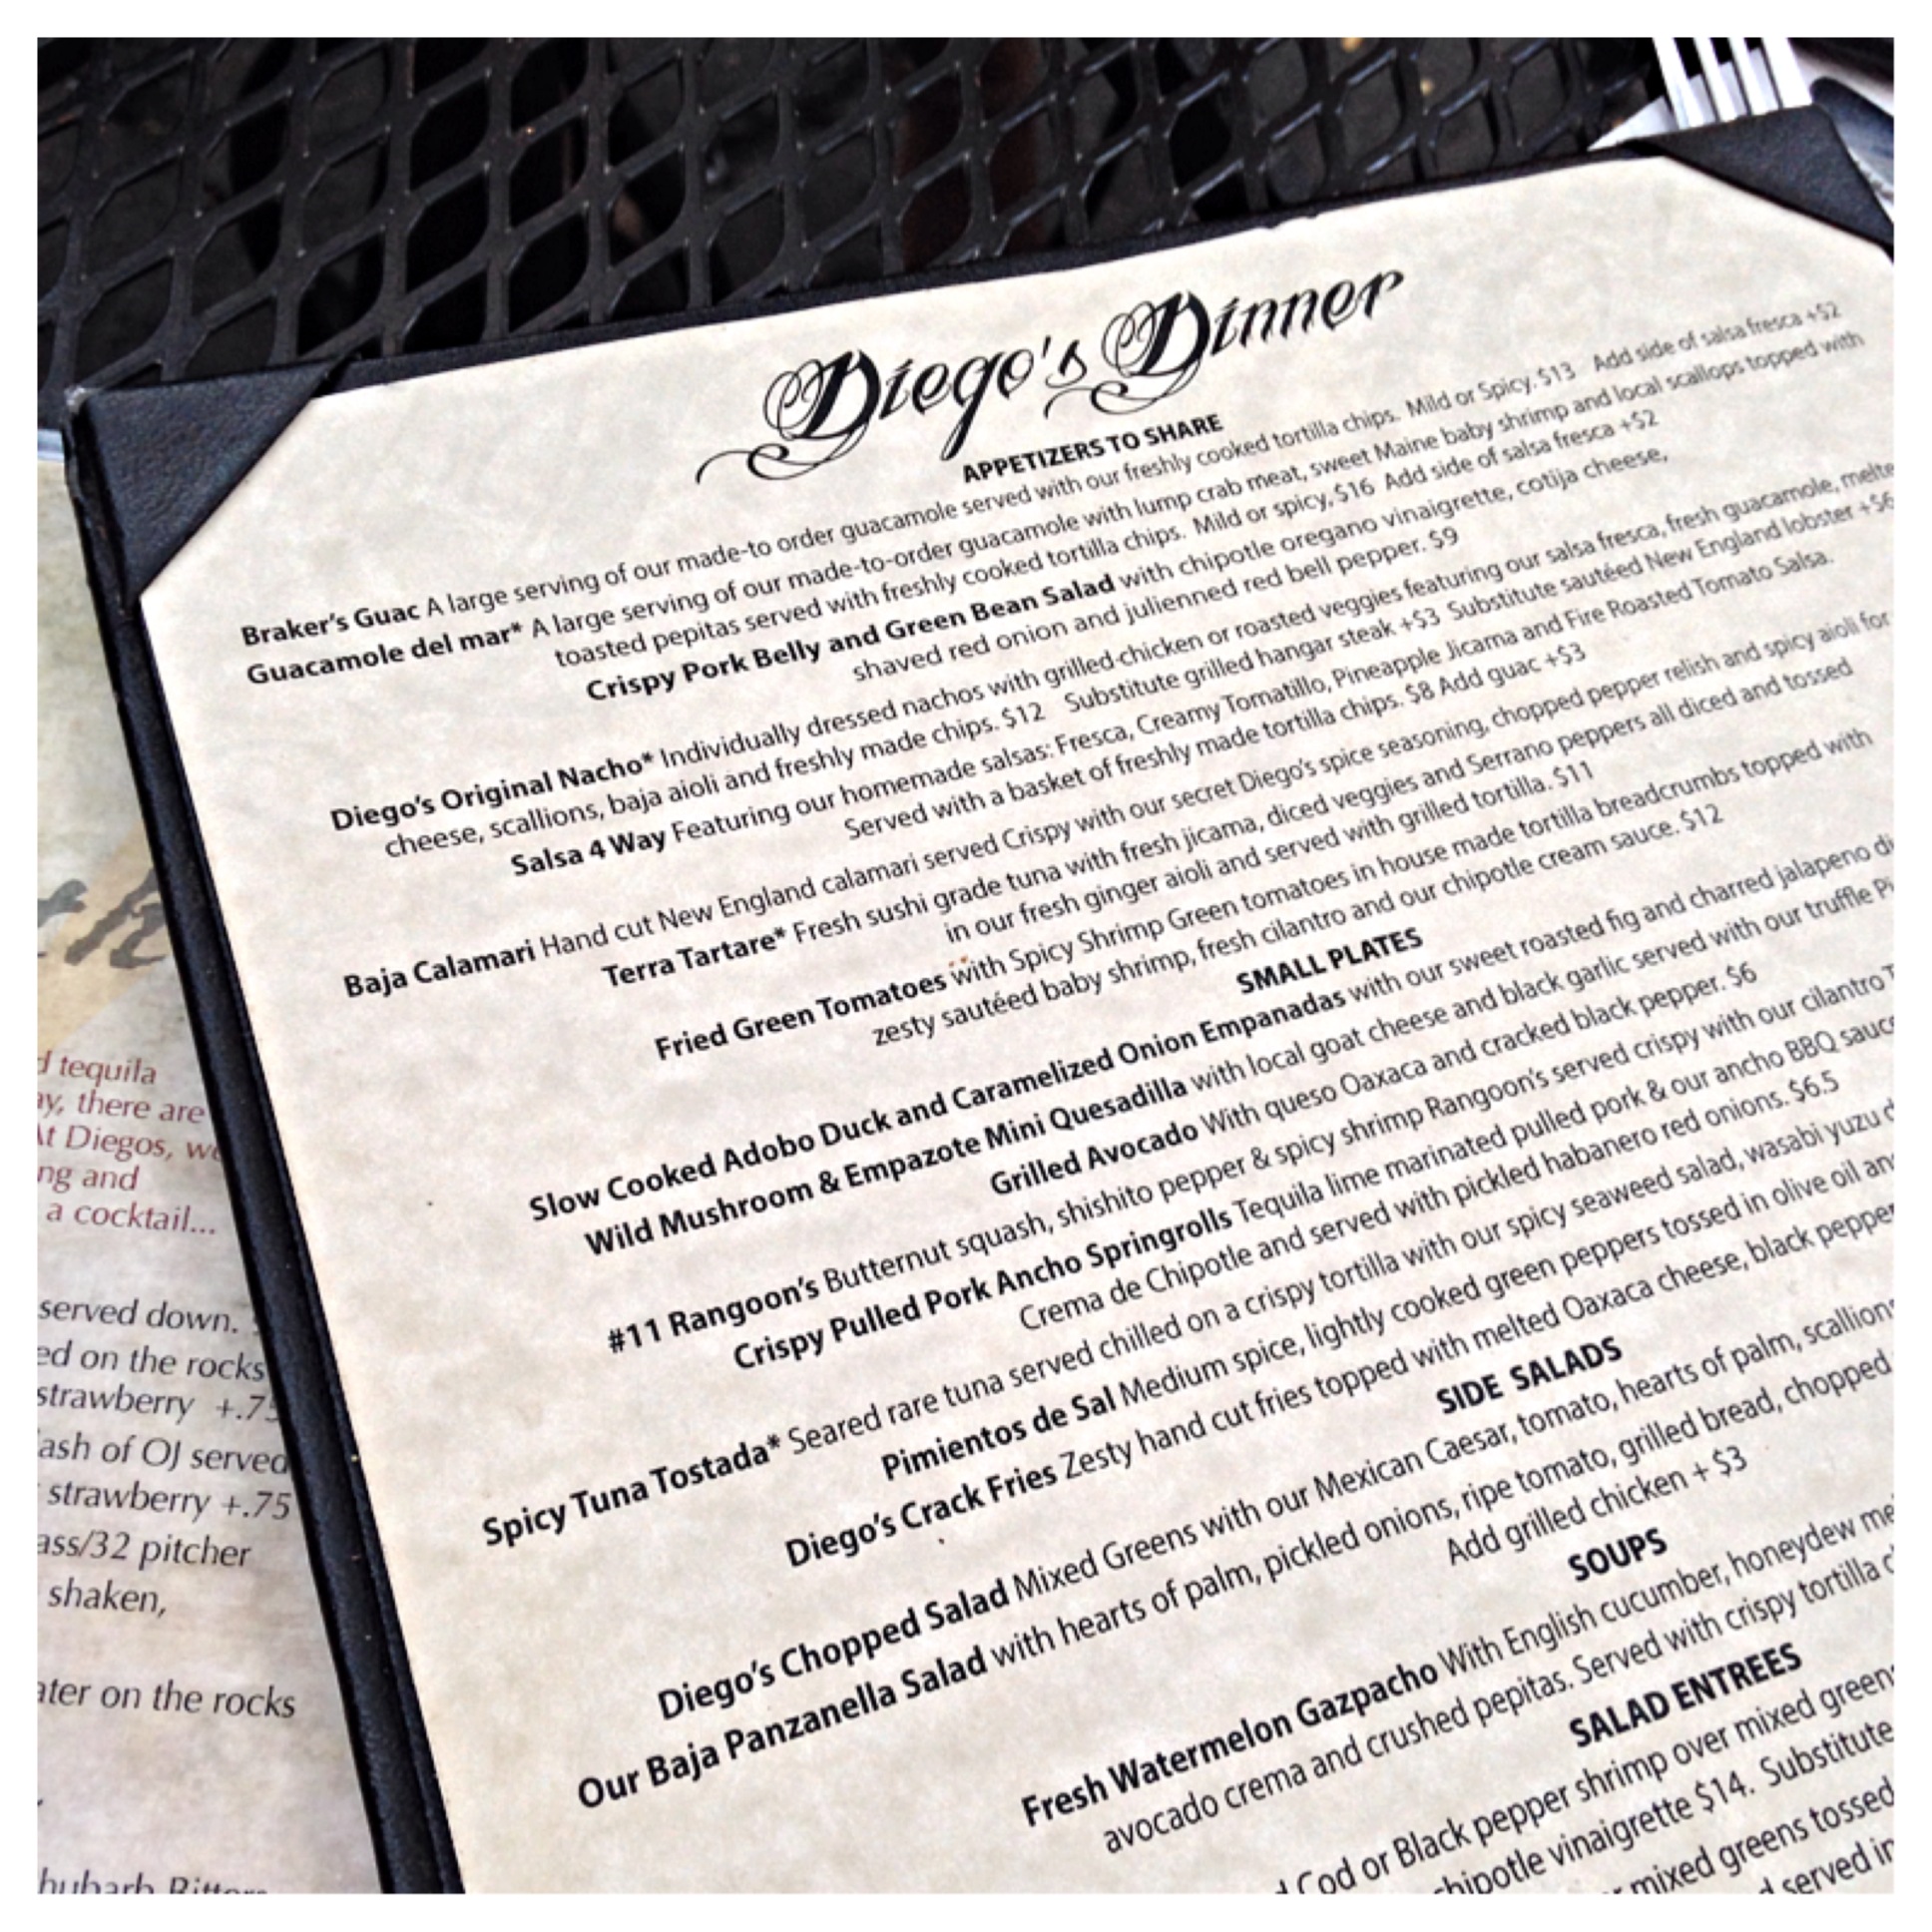 Diego's Dinner
APPETIZERS TO SHARE
Braker's Guac A large serving of our made-to order guacamole served with our freshly cooked tortilla chips. Mild or Spicy. $13 Add side of salsa fresca +$2
Guacamole del mar* A large serving of our made-to-order guacamole with lump crab meat, sweet Maine baby shrimp and local scallops topped with
toasted pepitas served with freshly cooked tortilla chips. Mild or spicy, $16 Add side of salsa fresca +$2
Crispy Pork Belly and Green Bean Salad with chipotle oregano vinaigrette, cotija cheese,
shaved red onion and julienned red bell pepper. $9
Diego's Original Nacho* Individually dressed nachos with grilled-chicken or roasted veggies featuring our salsa fresca, fresh guacamole, melte
cheese, scallions, baja aioli and freshly made chips. $12 Substitute grilled hangar steak +$3 Substitute sautéed New England lobster +$6
Salsa 4 Way Featuring our homemade salsas: Fresca, Creamy Tomatillo, Pineapple Jicama and Fire Roasted Tomato Salsa.
Served with a basket of freshly made tortilla chips. $8 Add guac +$3
Baja Calamari Hand cut New England calamari served Crispy with our secret Diego's spice seasoning, chopped pepper relish and spicy aioli for
Terra Tartare* Fresh sushi grade tuna with fresh jicama, diced veggies and Serrano peppers all diced and tossed
in our fresh ginger aioli and served with grilled tortilla. $11
Fried Green Tomatoes with Spicy Shrimp Green tomatoes in house made tortilla breadcrumbs topped with
zesty sautéed baby shrimp, fresh cilantro and our chipotle cream sauce. $12
SMALL PLATES
Slow Cooked Adobo Duck and Caramelized Onion Empanadas with our sweet roasted fig and charred jalapeno di
Wild Mushroom & Empazote Mini Quesadilla with local goat cheese and black garlic served with our truffle Pi
Grilled Avocado With queso Oaxaca and cracked black pepper. $6
#11 Rangoon's Butternut squash, shishito pepper & spicy shrimp Rangoon's served crispy with our cilantro T
Crispy Pulled Pork Ancho Springrolls Tequila lime marinated pulled pork & our ancho BBQ sauce
Crema de Chipotle and served with pickled habanero red onions. $6.5
Spicy Tuna Tostada* Seared rare tuna served chilled on a crispy tortilla with our spicy seaweed salad, wasabi yuzu d
Pimientos de Sal Medium spice, lightly cooked green peppers tossed in olive oil an
Diego's Crack Fries Zesty hand cut fries topped with melted Oaxaca cheese, black pepper
SIDE SALADS
Diego's Chopped Salad Mixed Greens with our Mexican Caesar, tomato, hearts of palm, scallion
Our Baja Panzanella Salad with hearts of palm, pickled onions, ripe tomato, grilled bread, chopped
Add grilled chicken + $3
SOUPS
Fresh Watermelon Gazpacho With English cucumber, honeydew me
avocado crema and crushed pepitas. Served with crispy tortilla c
SALAD ENTREES
d Cod or Black pepper shrimp over mixed green
chipotle vinaigrette $14. Substitute
mixed greens tossed
served in
d tequila
ay, there are
At Diegos, we
ng and
a cocktail...
served down.
ed on the rocks
strawberry +.75
ash of OJ served
strawberry +.75
ass/32 pitcher
shaken,
ater on the rocks
hubarb Bitters